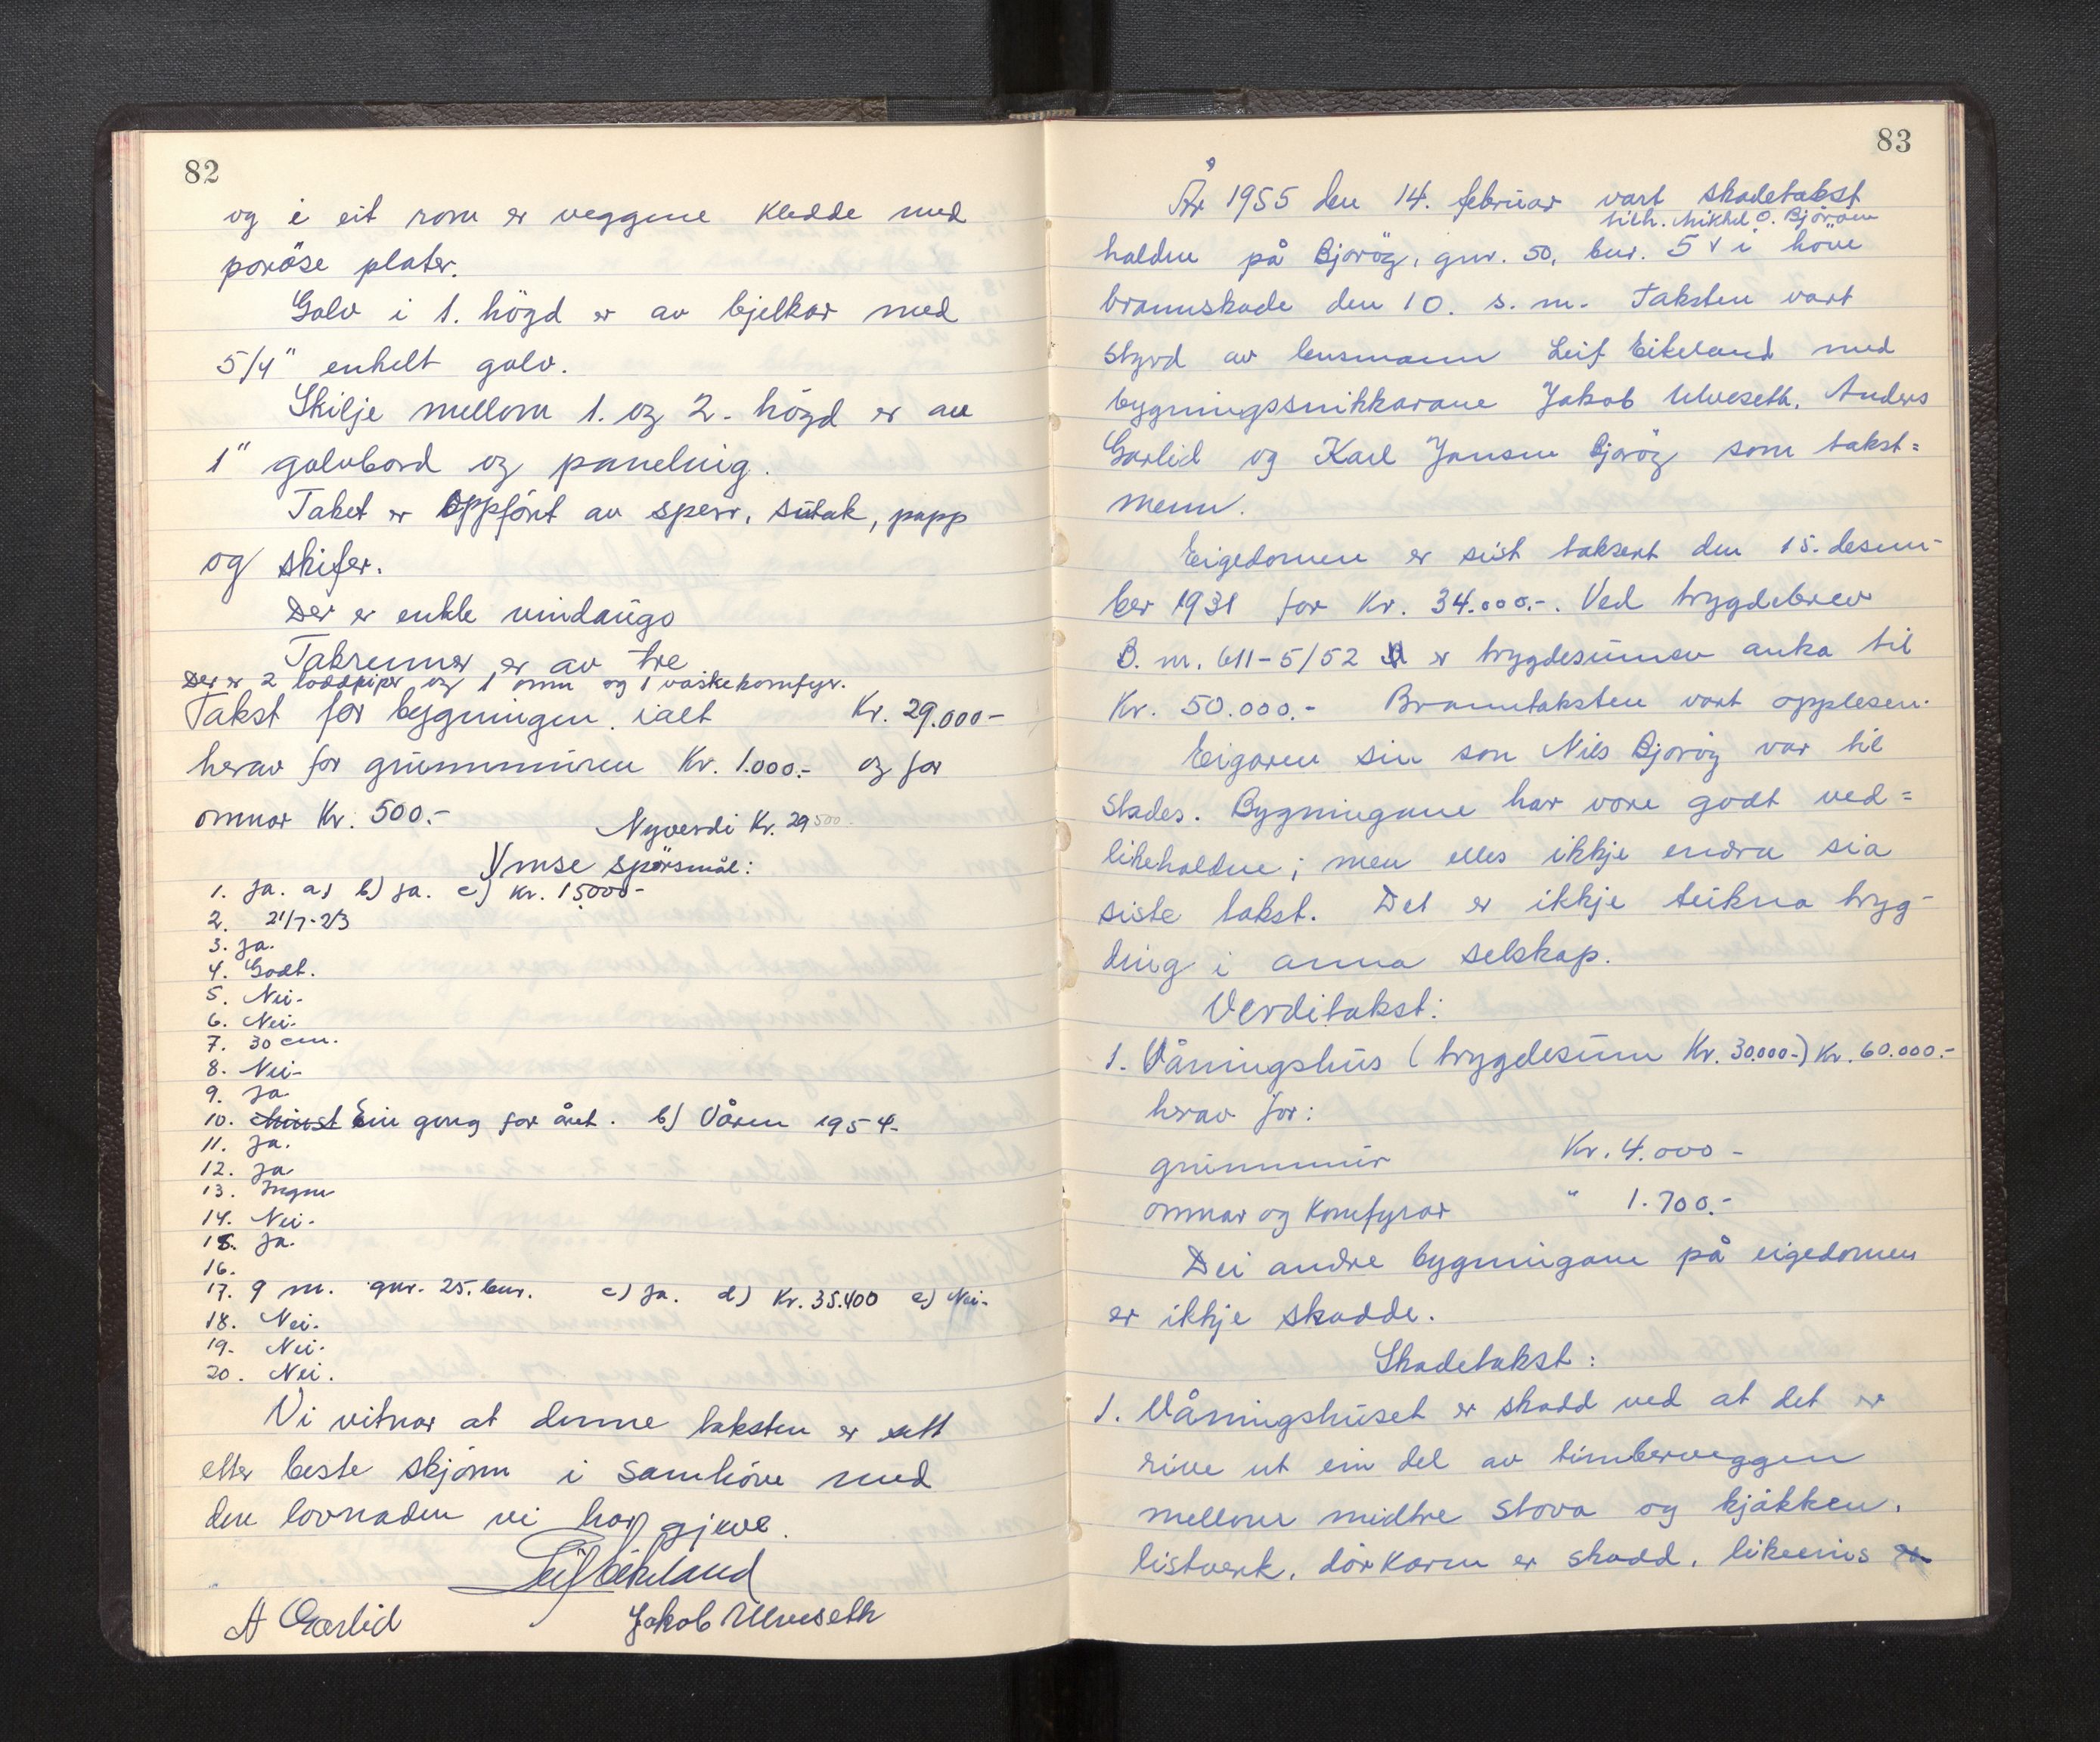 82
og i eit rom er veggene kledde med
poröse plater.
Golv i 1. högd er av bjelkar med
5/4" enkelt golv.
Skilje mellom 1. og 2. högd er av
1" golvbord og paneling.
Taket er oppfört av sperr, sutak, papp
og skifer.
Der er enkle vindaugo
Takrenner er av tre
Der er 2 loddpiper og 1 omn og 1 vaskekomfyr.
Takst for bygningen ialt Kr. 29.000-
herav for grunnmuren Kr. 1.000.- og for
omnar Kr. 500.-
Nyverdi Kr. 29500-
Ymse spörsmål:
1. Ja. a) b) Ja. c) Kr. 15000-
2. 21/7-2/3
3. Ja.
4. Godt.
5. Nei-
6. Nei-
7. 30 cm.
8. Nei-
9. Ja
10. Ein gong for året. b) Våren 1954.
11. Ja.
12. Ja
13. Ingen
14. Nei-
15. Ja.
16.
17. 9 m. gnr. 25. bnr. c) Ja. d) Kr. 35.400 e) Nei-
18. Nei.
19. Nei.
20. Nei.
Vi vitnar at denne taksten er sett
etter beste skjönn i samhöve med
den lovnaden vi har gjeve.
Leif Eikeland
A Garlid Jakob Ulveseth
83
År 1955 den 14. februar vart skadetakst
tilh. Mikkel O. Björöen
halden på Bjoröy, gnr. 50, bnr. 5 v i höve
brannskade den 10. s. m. Taksten vart
styrd av lensmann Leif Eikeland med
bygningssnikkarane Jakob Ulveseth, Anders
Garlid og Karl Jansen Bjoröy som takst=
menn.
Eigedomen er sist taksert den 15. desem-
ber 1931 for Kr. 34.000.-. Ved trygdebrev
B. nr. 611-5/52 er trygdesumen auka til
Kr. 50.000.- Branntaksten vart opplesen.
Eigaren sin son Nils Bjoröy var til
stades. Bygningane har vore godt ved=
likehaldne; men elles ikkje endra sia
siste takst. Det er ikkje teikna tryg-
ding i anna selskap.
Verditakst:
1. Våningshus (trygdesum Kr. 30.000-) Kr. 60.000.-
herav for:
grunnmur Kr. 4.000-
omnar og komfyrar " 1.700.-
Dei andre bygningane på eigedomen
er ikkje skadde.
Skadetakst:
1. Våningshuset er skadd ved at det er
rive ut ein del av timberveggen
mellom midtre stova og kjökken.
listverk, dörkarm er skadd, likeeins